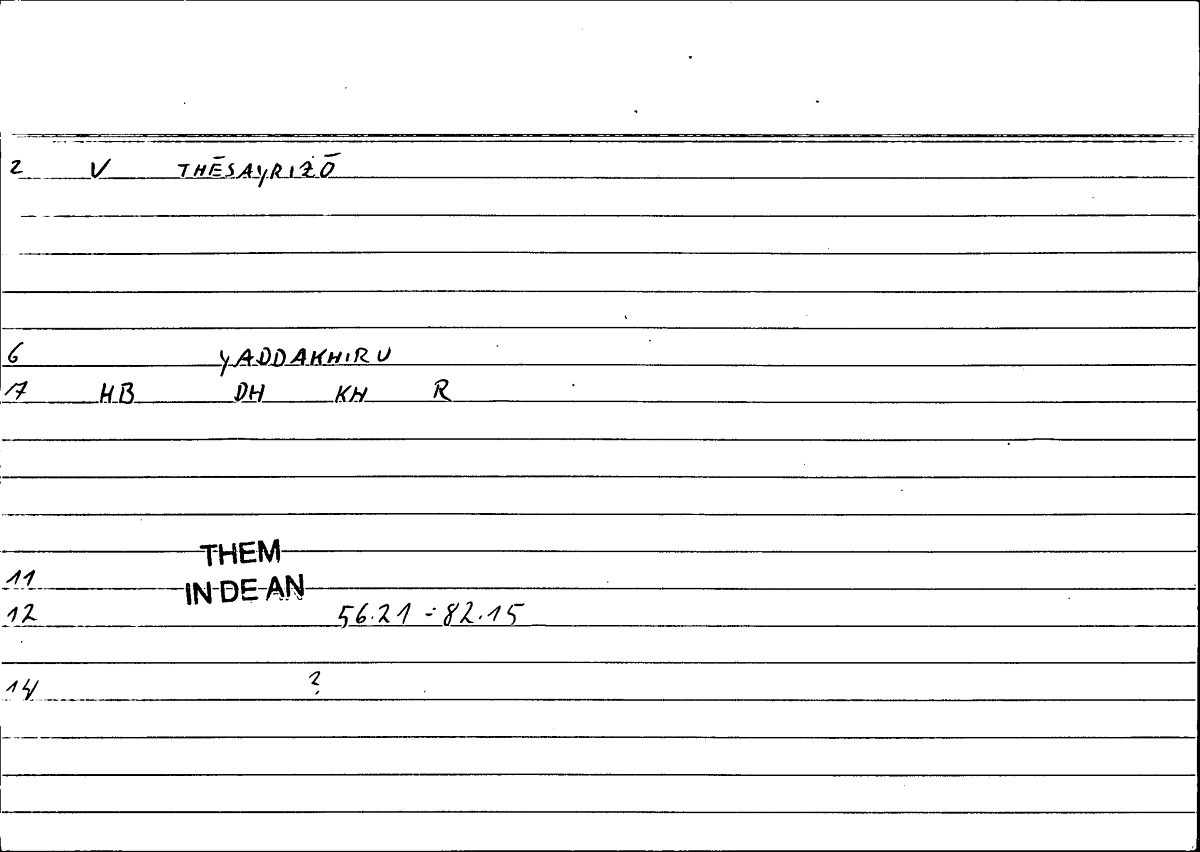 2 V THĒSAYRIZŌ
6 YADDAKHIRU
17 HB DH KH R
THEM
11 IN DE AN
12 56.21 = 82.15
14 ?